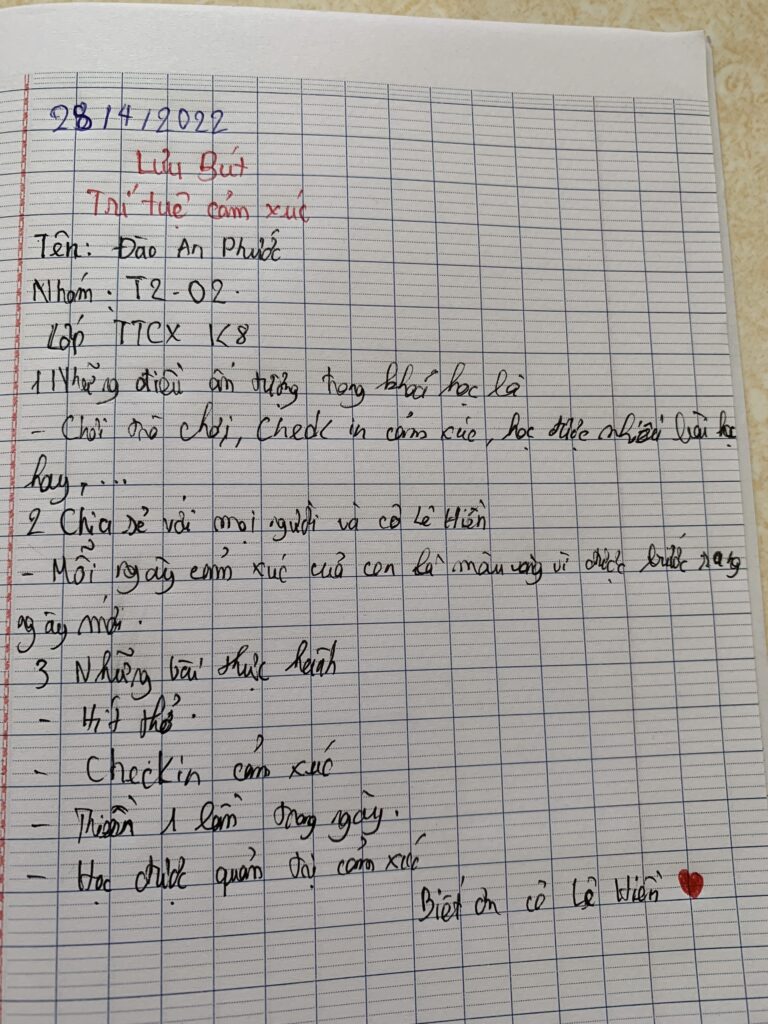 28/4/2022
Lưu Bút
Trí tuệ cảm xúc
Tên: Đào An Phước
Nhóm: T2-02.
Lớp TTCX K8
1 Những điều ấn tượng trong khoá học là
- Chơi trò chơi, Check in cảm xúc, học được nhiều bài học
hay, ....
2 Chia sẻ với mọi người và cô Lê Hiền
- Mỗi ngày cảm xúc của con là màu vàng vì được bước sang
ngày mới.
3 Những bài thực hành
- Hít thở.
- Checkin cảm xúc
- Thiền 1 lần trong ngày.
- Học được quản trị cảm xúc
Biết ơn cô Lê Hiền